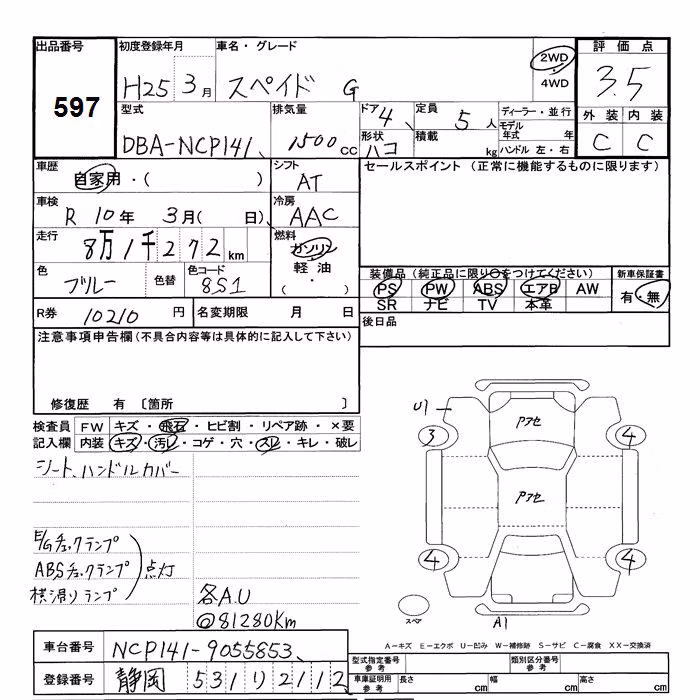 出品番号 初度登録年月 車名・グレード 評価点
597 H25 3月 スペイド G 2WD 4WD 3.5
型式 排気量 ドア 4、 定員 5人 ディーラー・並行 外装 内装
DBA-NCP141、 1500cc 形状 ハコ 積載 kg モデル年式 年 ハンドル 左・右 C C
車歴 自家用・( ) シフト AT セールスポイント (正常に機能するものに限ります)
車検 R 10年 3月( 日)、 冷房 AAC
走行 8万1千272km 燃料 ガソリン 軽油 (・)
色 ブルー 色替 色コード 8S1
装備品(純正品に限り○をつけてください) 新車保証書
PS PW ABS エアB AW 有・無
SR ナビ TV 本革
R券 10210円 名変期限 月 日 後日品
注意事項申告欄(不具合内容等は具体的に記入して下さい)
修復歴 有 〔箇所 〕
検査員 FW キズ・飛石・ヒビ割・リペア跡・×要
記入欄 内装 キズ・汚レ・コゲ・穴・スレ・キレ・破レ
シート、ハンドルカバー
E/Gチェックランプ
ABSチェックランプ 点灯
横滑りランプ
各A.U
@81280Km
U1
Pアセ
3 4
Pアセ
4 4
スペア A1
A−キズ E−エクボ U−凹み W−補修跡 S−サビ C−腐食 XX−交換済
車台番号 NCP141-9055853、
型式指定番号 参考 類別区分番号 参考
登録番号 静岡 531 り 2112、
車庫証明用 参考 長さ cm 幅 cm 高さ cm